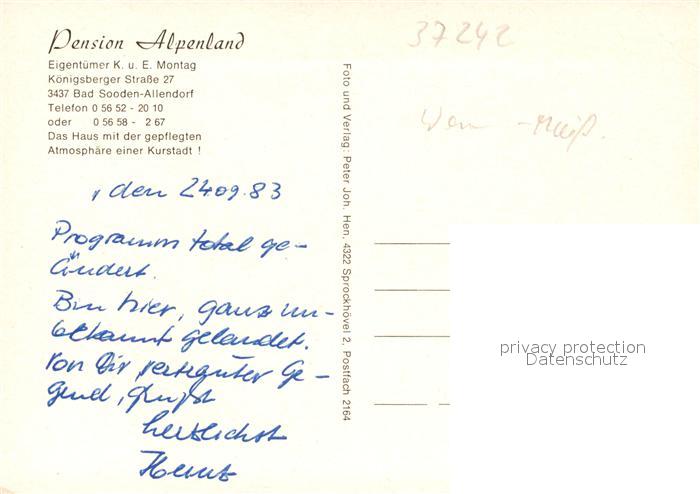 Pension Alpenland
Eigentümer K. u. E. Montag
Königsberger Straße 27
3437 Bad Sooden-Allendorf
Telefon 0 56 52 - 20 10
oder 0 56 58 - 2 67
Das Haus mit der gepflegten
Atmosphäre einer Kurstadt !
, den 24.09.83
Programm total ge-
ändert.
Bin hier, ganz un-
bekannt gelandet.
Von Dir, Ge-
gend, grüßt
herzlichst
Heinz
Foto und Verlag: Peter Joh. Hen, 4322 Sprockhövel 2, Postfach 2164
37242
privacy protection
Datenschutz